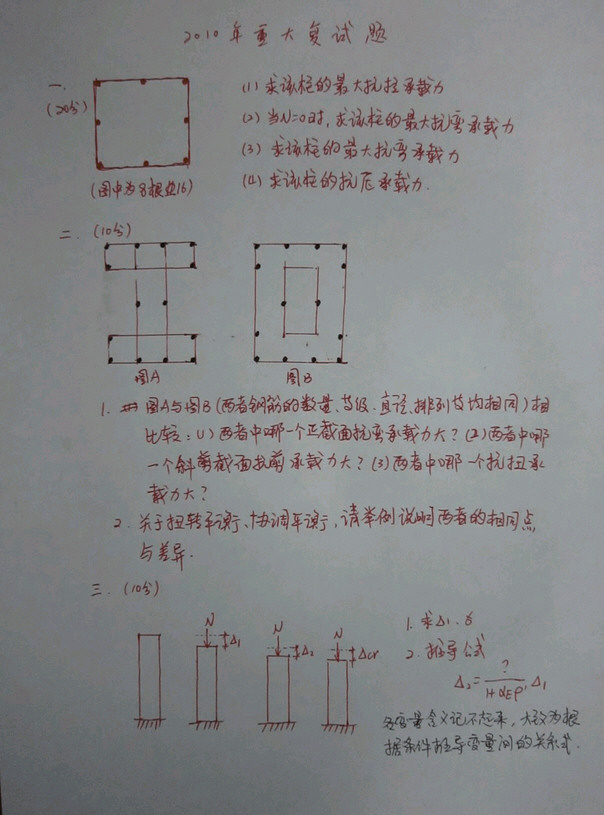 2010年重大复试题
一.
(20分)
(1) 求该柱的最大抗拉承载力
(2) 当N=0时, 求该柱的最大抗弯承载力
(3) 求该柱的最大抗弯承载力
(4) 求该柱的抗压承载力.
(图中为8根Φ16)
二. (10分)
图A 图B
1. 图A与图B(两者钢筋的数量、等级、直径、排列等均相同)相
比较: (1) 两者中哪一个正截面抗弯承载力大? (2) 两者中哪
一个斜剪截面抗剪承载力大? (3) 两者中哪一个抗扭承
载力大?
2. 关于扭转平衡、协调平衡, 请举例说明两者的相同点
与差异.
三. (10分)
N Δ₁ N Δ₂ N Δcr
1. 求Δ₁、
2. 推导公式
Δ₂ = ?/(1+αEρ') Δ₁
各变量含义记不起来, 大致为根
据条件推导变量间的关系式.